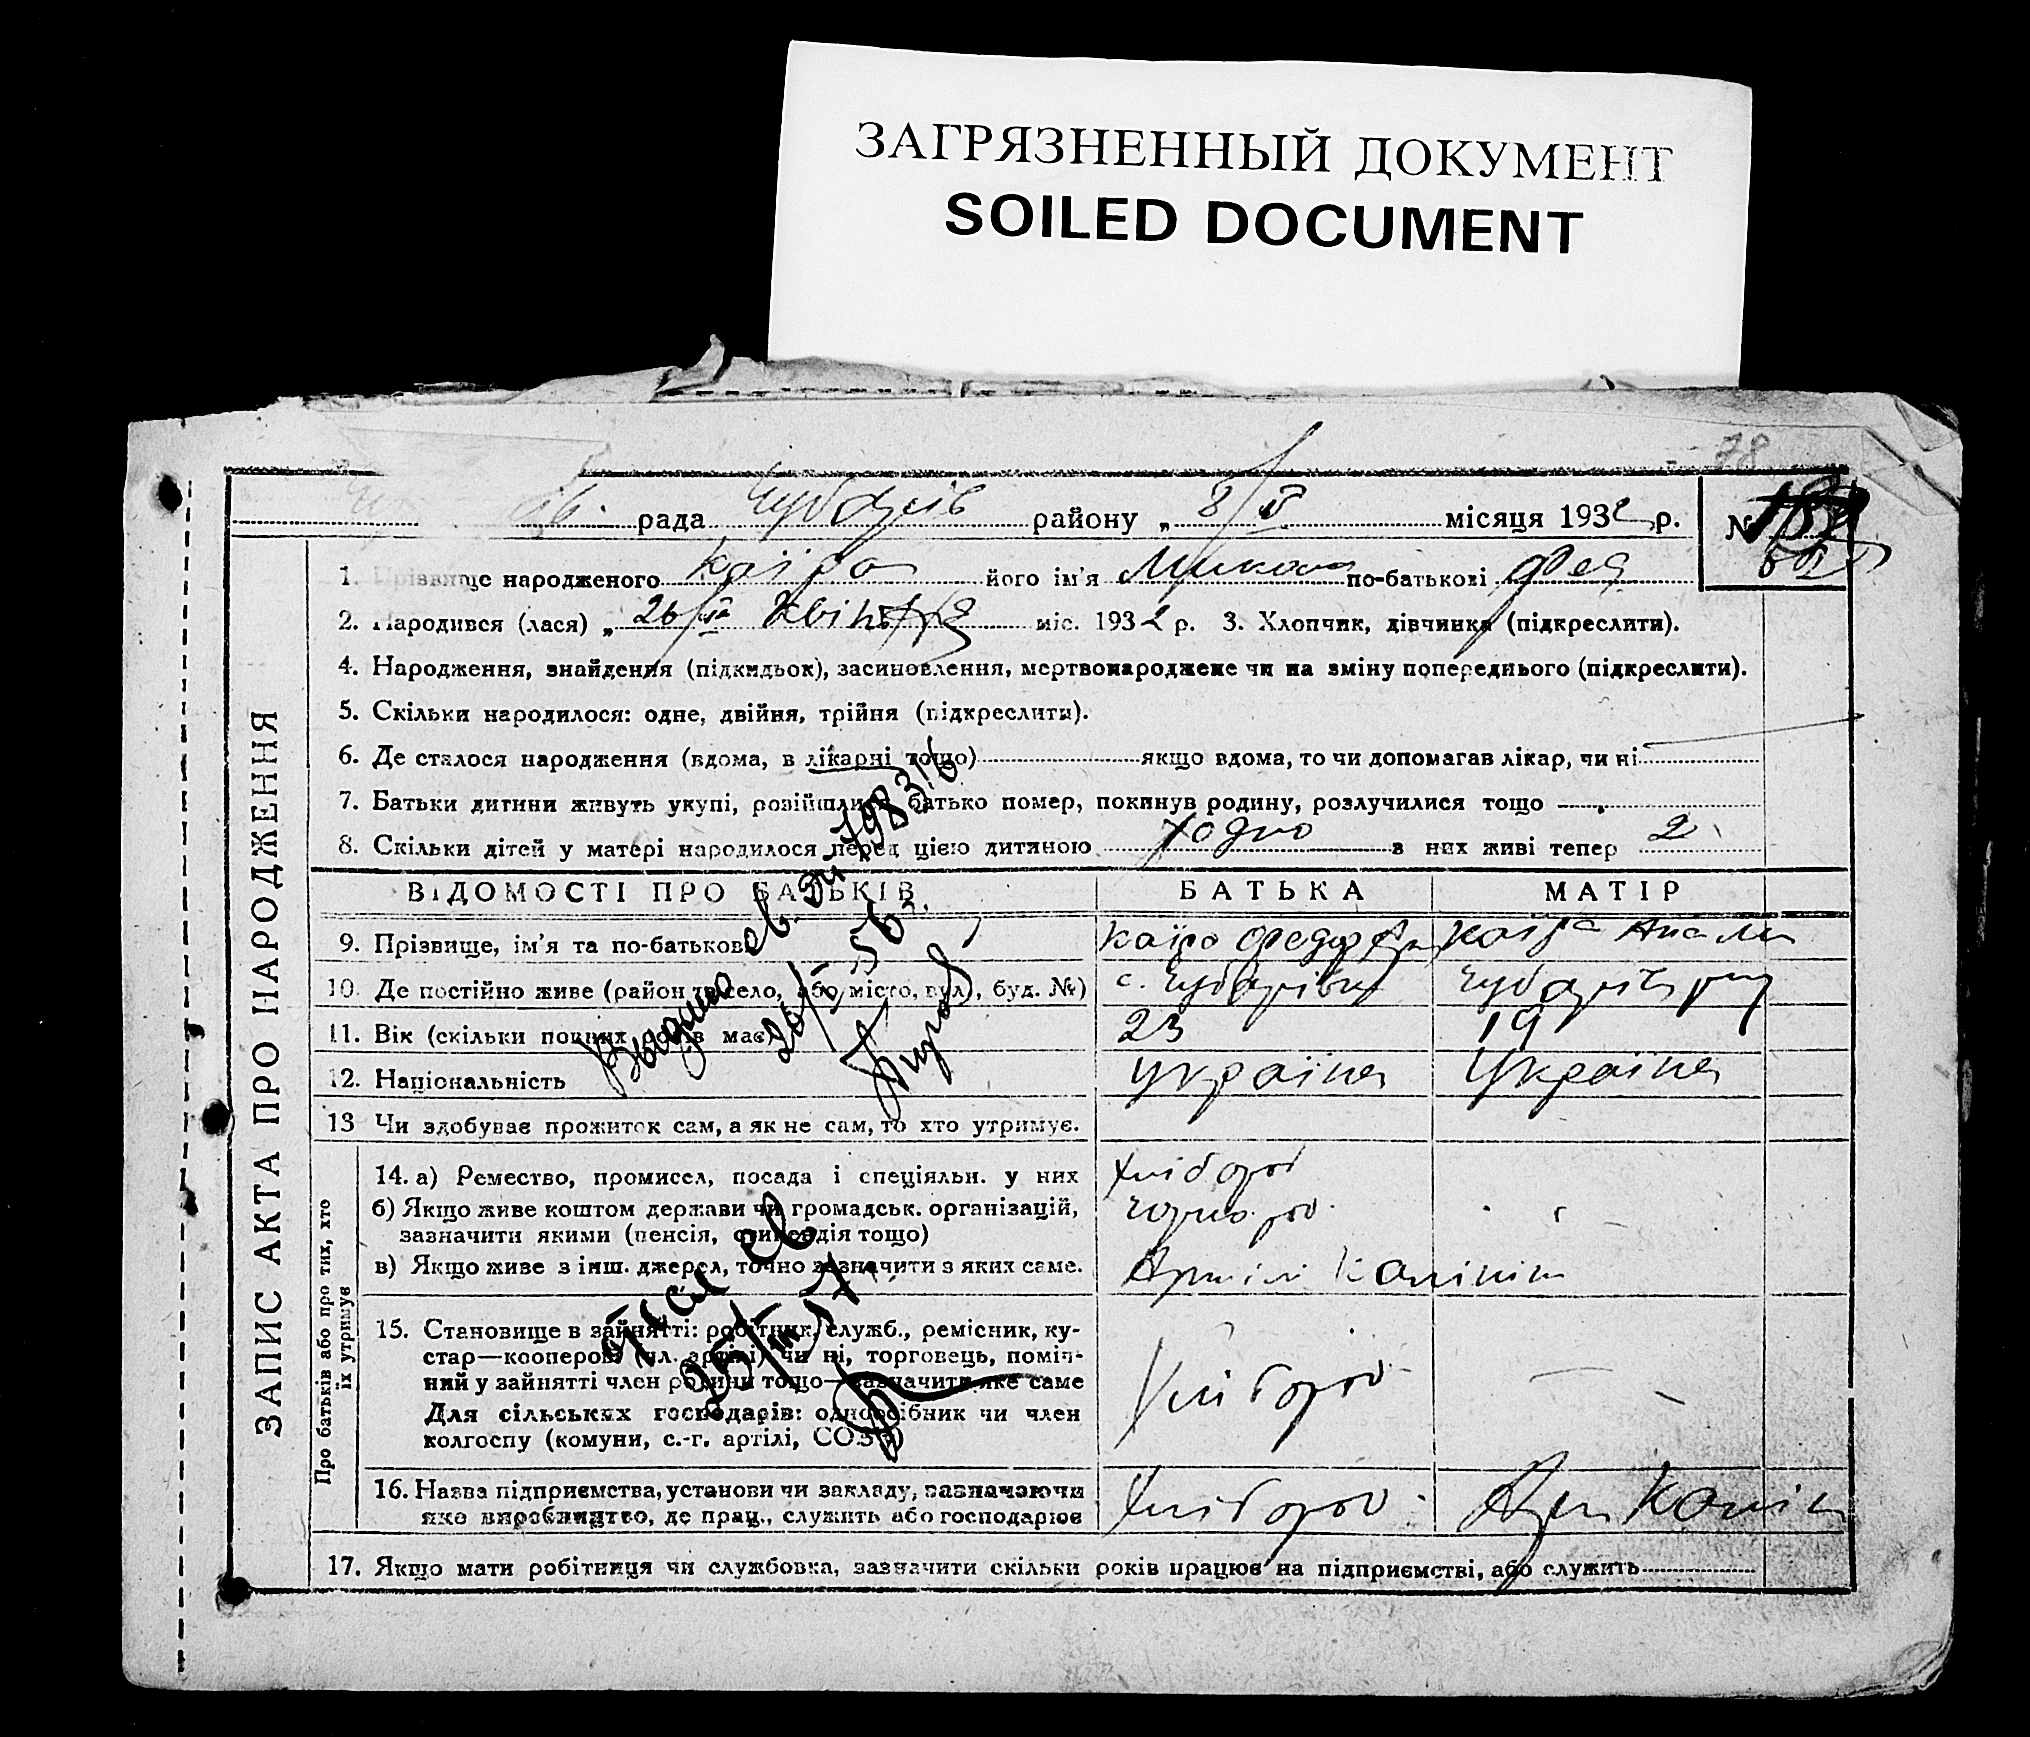 ЗАГРЯЗНЕННЫЙ ДОКУМЕНТ
SOILED DOCUMENT
78
рада Чубарів району „ 8/V місяця 1932 р. №
ЗАПИС АКТА ПРО НАРОДЖЕННЯ
1. Прізвище народженого Каїра його ім'я Микола по-батькові Фед
2. Народився (лася) „ 26/IV Квітня міс. 1932 р. 3. Хлопчик, дівчинка (підкреслити).
4. Народження, знайдення (підкидьок), засиновлення, мертвонароджене чи на зміну попереднього (підкреслити).
5. Скільки народилося: одне, двійня, трійня (підкреслити).
6. Де сталося народження (вдома, в лікарні тощо) якщо вдома, то чи допомагав лікар, чи ні
7. Батьки дитини живуть укупі, розійшлися, батько помер, покинув родину, розлучилися тощо —
8. Скільки дітей у матері народилося перед цією дитиною одно з них живі тепер 2
ВІДОМОСТІ ПРО БАТЬКІВ. БАТЬКА МАТІР
9. Прізвище, ім'я та по-батькові Каїра Федор Каїра
10. Де постійно живе (район та село, або місто, вул., буд. №) с. Чубарівка
11. Вік (скільки повних років має) 23 19
12. Національність Україне Україне
13 Чи здобуває прожиток сам, а як не сам, то хто утримує.
Про батьків або про тих, хто їх утримує
14. а) Ремество, промисел, посада і спеціяльн. у них хлібороб
б) Якщо живе коштом держави чи громадськ. організацій, чорнороб
зазначити якими (пенсія, стипендія тощо)
в) Якщо живе з інш. джерел, точно зазначити з яких саме. Артілі Калінін
15. Становище в зайнятті: робітник, служб., ремісник, ку-
стар—кооперов. (чл. артілі) чи ні, торговець, поміч-
ний у зайнятті член родини тощо—зазначити яке саме хлібороб —
Для сільських господарів: одноосібник чи член
колгоспу (комуни, с.-г. артілі, СОЗ'у)
16. Назва підприємства, установи чи закладу, зазначаючи хлібороб Арт Калінін
яке виробництво, де прац., служить або господарює
17. Якщо мати робітниця чи службовка, зазначити скільки років працює на підприємстві, або служить
Выдано св. 798316
20/V-56
25/III 57